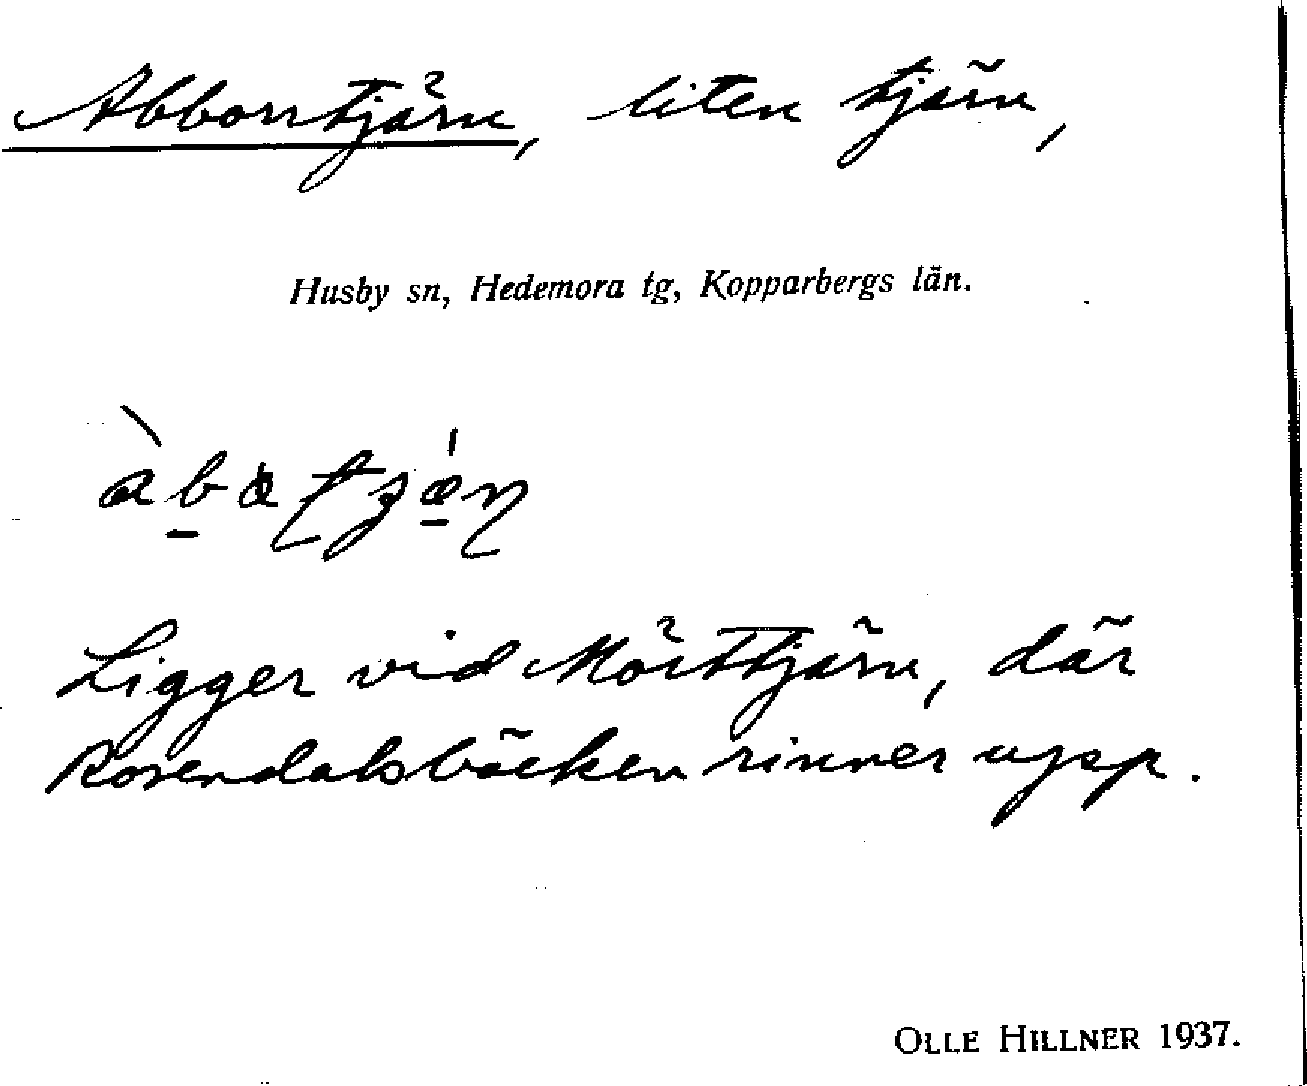 Abborrtjärn, liten tjärn,
Husby sn, Hedemora tg, Kopparbergs län.
Ligger vid Mörttjärn, där
Rosendalsbäcken rinner upp.
OLLE HILLNER 1937.